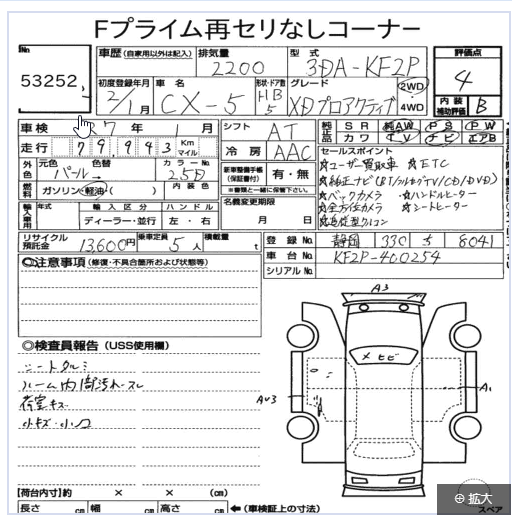 Fプライム再セリなしコーナー
No.
53252
車歴 (自家用以外は記入) 排気量 型式 評価点
2200 3DA-KF2P 4
初度登録年月 車名 形状・ドア数 グレード
2/1月 CX-5 HB 5 XDプロアクティブ 2WD・4WD
内装補助評価 B
車検 7年 1月 シフト AT 純正品 SR 純AW PS PW
カワ TV ナビ エアB
走行 79,943 Km マイル 冷房 AAC
セールスポイント
外色 元色 色替 カラーNo.
パール→ 25D
新車整備手帳(保証書付) 有・無
※書類と一緒に保管下さい。
☆ユーザー買取車 ☆ETC
☆純正ナビ(BT/フルセグTV/CD/DVD)
☆バックカメラ ☆ハンドルヒーター
☆全方位カメラ ☆シートヒーター
燃料 ガソリン・軽油・( ) 内装色
名義変更期限
月 日
輸入車用 年式 輸入区分 ハンドル
ディーラー・並行 左・右
リサイクル預託金 13,600円 乗車定員 5人 積載量 t
登録No. 静岡 330 す 8041
車台No. KF2P-400254
シリアルNo.
◎注意事項 (修復・不具合箇所および状態等)
◎検査員報告 (USS使用欄)
シートクルミ
ルーム内部汚れ・スレ
荷室キズ
小キズ・小凹
A3
×ヒビ
AU3
A1
【荷台内寸】約 × × (cm)
長さ cm 幅 cm 高さ cm ←(車検証上の寸法)
スペア
拡大